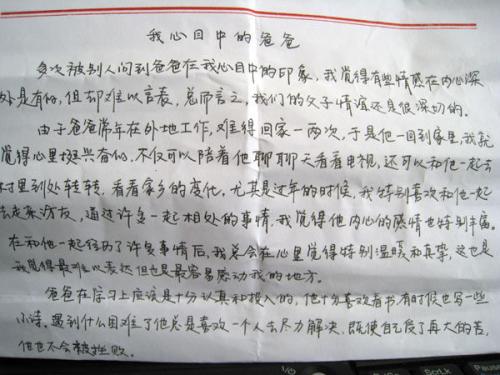 我心目中的爸爸
多次被别人问到爸爸在我心目中的印象,我觉得有些情感在内心深
处是有的,但却难以言表,总而言之,我们的父子情谊还是很深切的。
由于爸爸常年在外地工作,难得回家一两次,于是他一回到家里,我就
觉得心里挺兴奋的,不仅可以陪着他聊聊天看看电视,还可以和他一起去
村里到处转转,看看家乡的变化,尤其是过年的时候,我特别喜欢和他一起
去走亲访友,通过许多一起相处的事情,我觉得他内心的感情也特别丰富。
在和他一起经历了许多事情后,我总会在心里觉得特别温暖和真挚,这也是
我觉得最难以表达但也是最容易感动我的地方。
爸爸在学习上应该是十分认真和投入的,他十分喜欢看书有时候也写一些
小诗,遇到什么困难了他总是喜欢一个人去尽力解决,既使自己受了再大的苦,
他也不会被挫败。
ScrLk
Pause